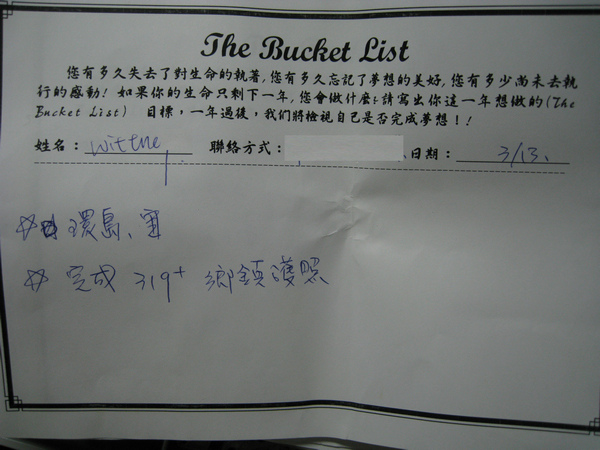 The Bucket List
您有多久失去了對生命的執著,您有多久忘記了夢想的美好,您有多少尚未去執
行的感動! 如果你的生命只剩下一年,您會做什麼?請寫出你這一年想做的(The
Bucket List) 目標,一年過後,我們將檢視自己是否完成夢想!!
姓名: 聯絡方式: 日期: 3/13.
☆ 環島、
☆ 完成 319+ 鄉鎮護照